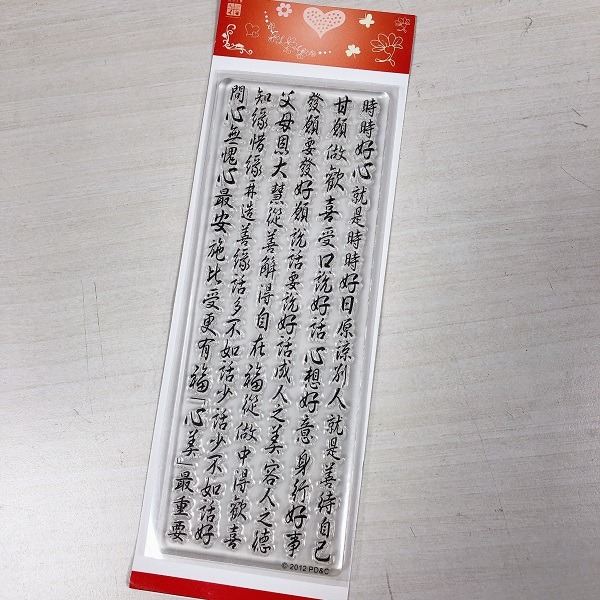 時時好心就是時時好日原諒別人就是善待自己
甘願做歡喜受口說好話心想好意身行好事
發願要發好願說話要說好話成人之美容人之德
父母恩大慧從善解得自在福從做中得歡喜
知緣惜緣再造善緣話多不如話少話少不如話好
問心無愧心最安施比受更有福「心美」最重要
© 2012 PD&C